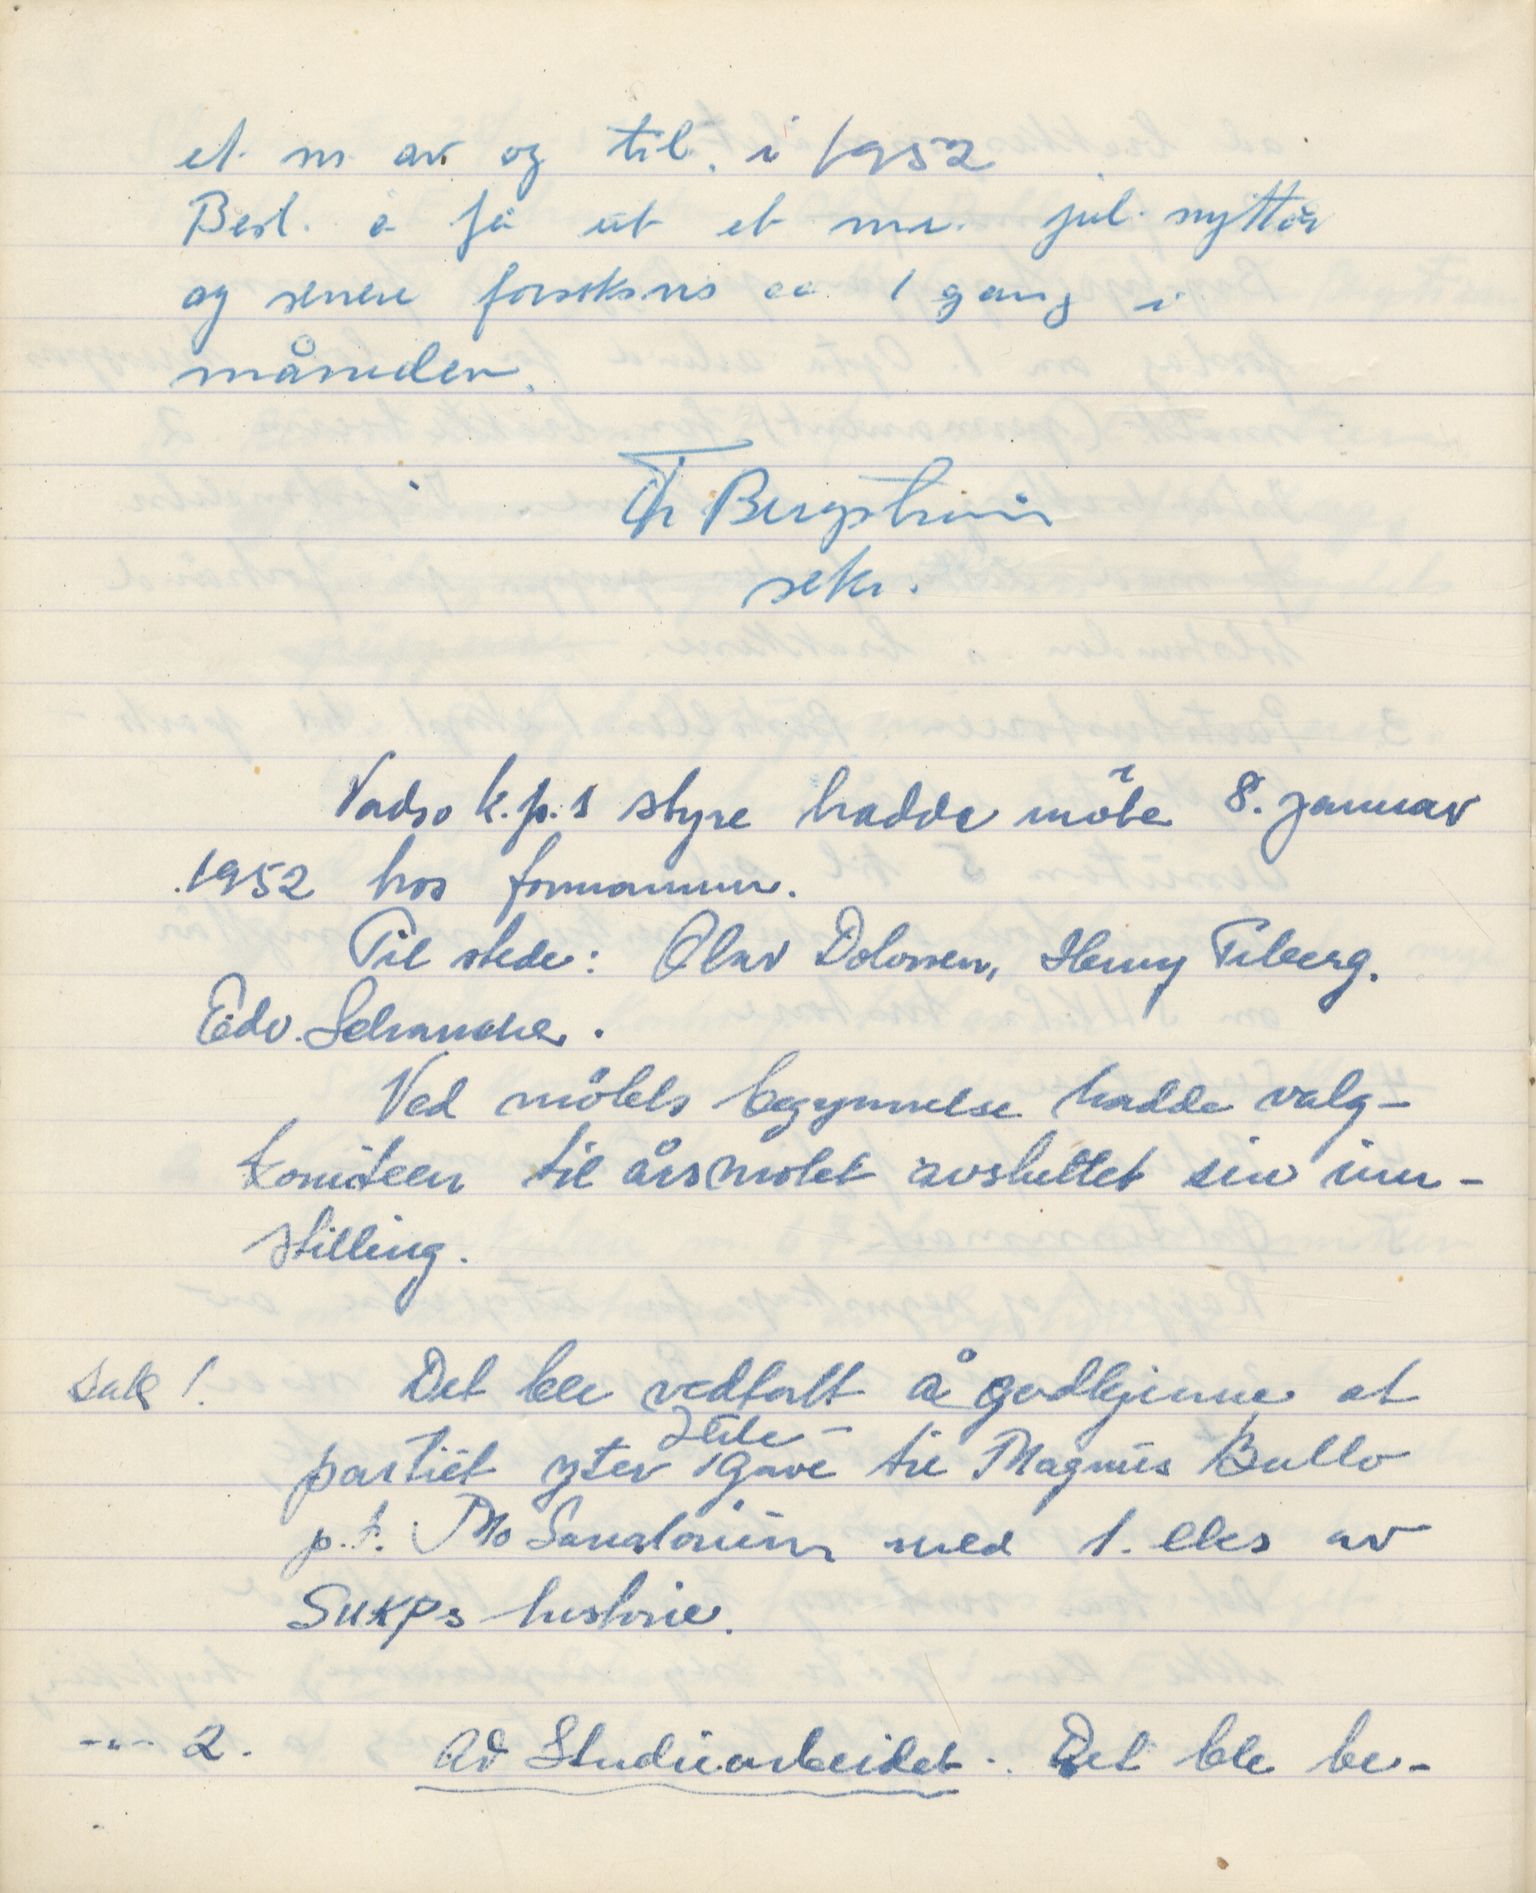 et nr av og til. i 1952
Besl. å få ut et nr. jul nyttår
og senere forsøksvis ca 1 gang i
måneden.
Th Bergstrøm
sekr.
Vadsø k.p.s styre hadde möte 8. januar
1952 hos formannen.
Til stede: Olav Dolonen, Henry Fiberg.
Edv. Schanche.
Ved mötets begynnelse hadde valg-
komiteen til årsmötet avsluttet sin inn-
stilling.
Sak 1. Det ble vedtatt å godkjenne at
partiet yter Jule-
gave til Magnus Bullo
p.t. Mo Sanatorium med 1. eks av
SUKPs historie.
-"- 2. Ad Studiearbeidet. Det ble be-